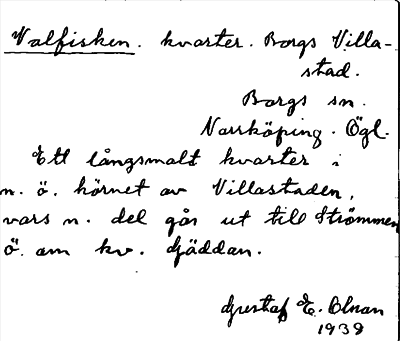 Valfisken. kvarter. Borgs Villa-
stad.
Borgs sn.
Norrköping. Ögl.
Ett långsmalt kvarter i
n. ö. hörnet av Villastaden,
vars n. del går ut till Strömmen
ö. om kv. Gäddan.
Gustaf E.
1939